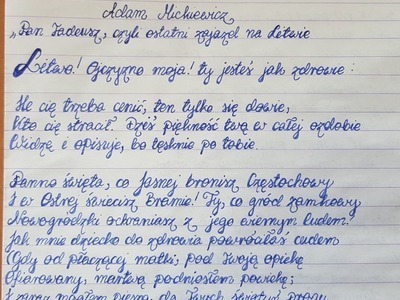 Adam Mickiewicz
„Pan Tadeusz, czyli ostatni zajazd na Litwie
Litwo! Ojczyzno moja! ty jesteś jak zdrowie:
Ile cię trzeba cenić, ten tylko się dowie,
Kto cię stracił. Dziś piękność twą w całej ozdobie
Widzę i opisuję, bo tęsknię po tobie.
Panno święta, co Jasnej bronisz Częstochowy
I w Ostrej świecisz Bramie! Ty, co gród zamkowy
Nowogródzki ochraniasz z jego wiernym ludem!
Jak mnie dziecko do zdrowia powróciłaś cudem
(Gdy od płaczącej matki, pod Twoją opiekę
Ofiarowany, martwą podniosłem powiekę;
I zaraz mogłem pieszo, do Twych świątyń progu